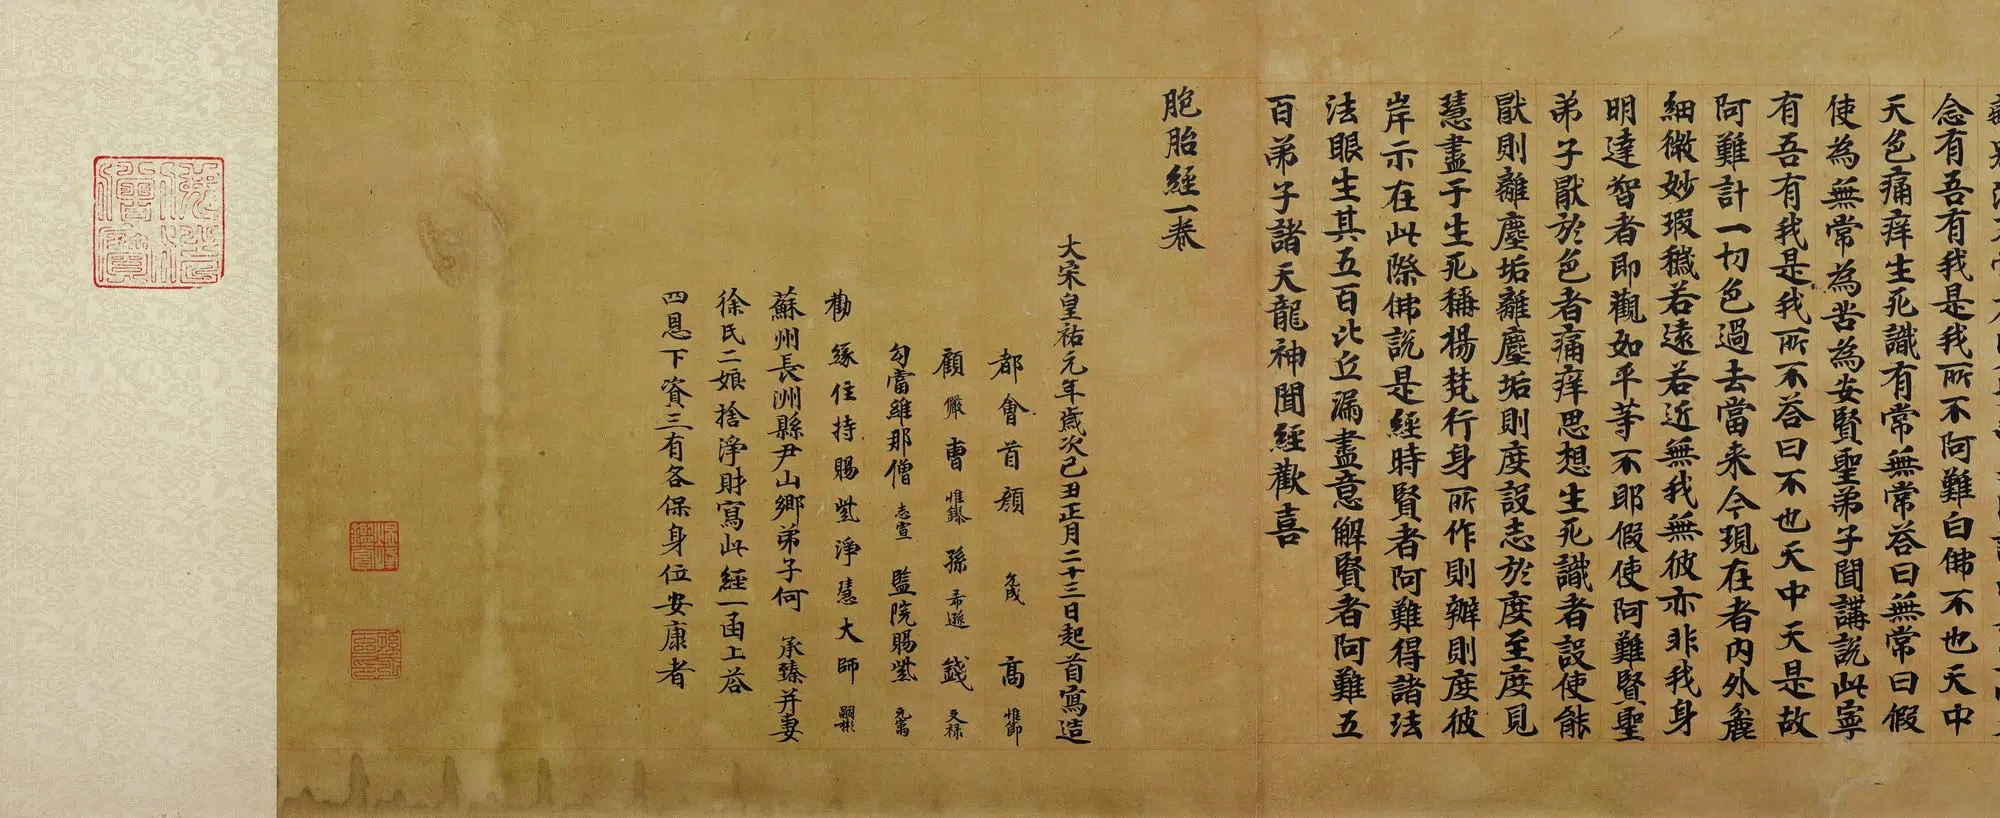 念有吾有我是我所不阿難白佛不也天中
天色痛痒生死識有常無常荅曰無常曰假
使為無常為苦為安賢聖弟子聞講說此寧
有吾有我是我所不荅曰不也天中天是故
阿難計一切色過去當来今現在者內外麁
細微妙瑕穢若遠若近無我無彼亦非我身
明達智者即觀如平等不耶假使阿難賢聖
弟子猒於色者痛痒思想生死識者設使能
猒則離塵垢離塵垢則度設志於度至度見
慧盡于生死稱揚梵行身所作則辦則度彼
岸示在此際佛說是經時賢者阿難得諸法
法眼生其五百比丘漏盡意解賢者阿難五
百弟子諸天龍神聞經歡喜
胞胎經一卷
大宋皇祐元年歲次己丑正月二十三日起首寫造
都會首顏 允成 高 惟節
顧 儼 曹 惟鏴 孫 希遜 錢 文禄
勾當維那僧 志宣 監院賜紫 元甯
勸緣住持賜紫淨慧大師 嗣彬
蘇州長洲縣尹山鄉弟子何 承臻并妻
徐氏二娘捨淨財寫此經一函上荅
四恩下資三有各保身位安康者